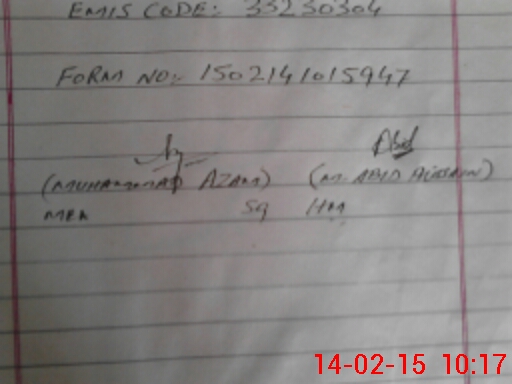 EMIS CODE:- 33230304
FORM NO:- 1502141015947
Abid
(MUHAMMAD AZAM) (M. ABID HUSSAIN)
MEA SG HM
14-02-15 10:17